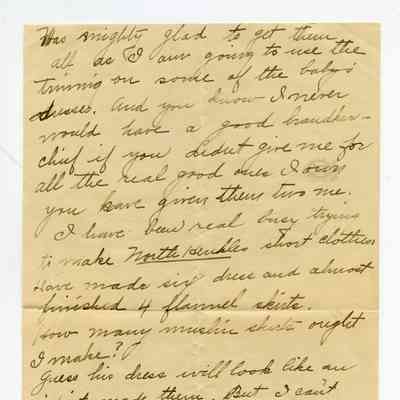 Was mighty glad to get them
all as I am going to use the
triming on some of the baby's
dresses. And you know I never
would have a good handker-
chief if you didnt give me for
all the real good ones I own
you have given them two me.
I have been real busy trying
to make short clothes
Have made six dress and almost
finished 4 flannel skirts.
How many muslin skirts ought
I make?
Guess his dress will look like an
made them. But I can't